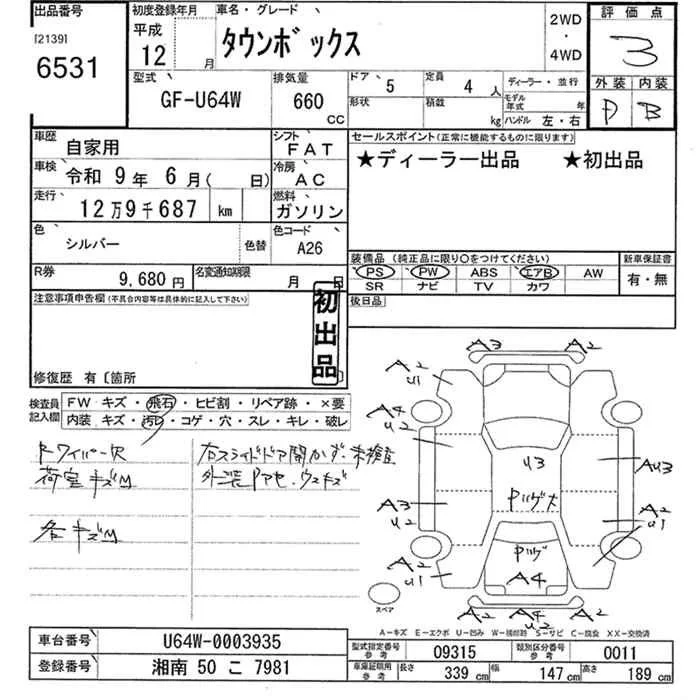 出品番号
[2139]
6531
初度登録年月
平成
12 月
車名・グレード
タウンボックス
2WD
・
4WD
評価点
3
外装 内装
D B
型式
GF-U64W
排気量
660
CC
ドア 5
定員 4 人
形状
積載 kg
ディーラー・並行
モデル年式 年
ハンドル 左・右
車歴
自家用
シフト
FAT
車検
令和 9年 6月( 日)
冷房
AC
走行
12万9千687 km
燃料
ガソリン
色
シルバー
色替
色コード
A26
R券
9,680円
名変通知期限
月 日
セールスポイント(正常に機能するものに限ります)
★ディーラー出品 ★初出品
装備品 (純正品に限り○をつけてください)
PS PW ABS エアB AW
SR ナビ TV カワ
新車保証書
有・無
後日品
注意事項申告欄(不具合内容等は具体的に記入して下さい)
初出品
修復歴 有〔箇所 〕
検査員記入欄
FW キズ・飛石・ヒビ割・リペア跡・×要
内装 キズ・汚れ・コゲ・穴・スレ・キレ・破レ
荷室キズM
各キズM
右スライドドア開かず・未検査
外装Pアセ・ウスキズ
A3 A2
A2
U1
A2
A4
U2
A4
U3
AU3
A3
U2
A2
U1
A2
U1
A4
A2
A2 A4 A2
U2
スペア
A-キズ E-エクボ U-凹み W-補修跡 S-サビ C-腐食 XX-交換済
車台番号
U64W-0003935
登録番号
湘南 50 こ 7981
型式指定番号
参考
09315
類別区分番号
参考
0011
車庫証明用
参考
長さ 339 cm
幅 147 cm
高さ 189 cm